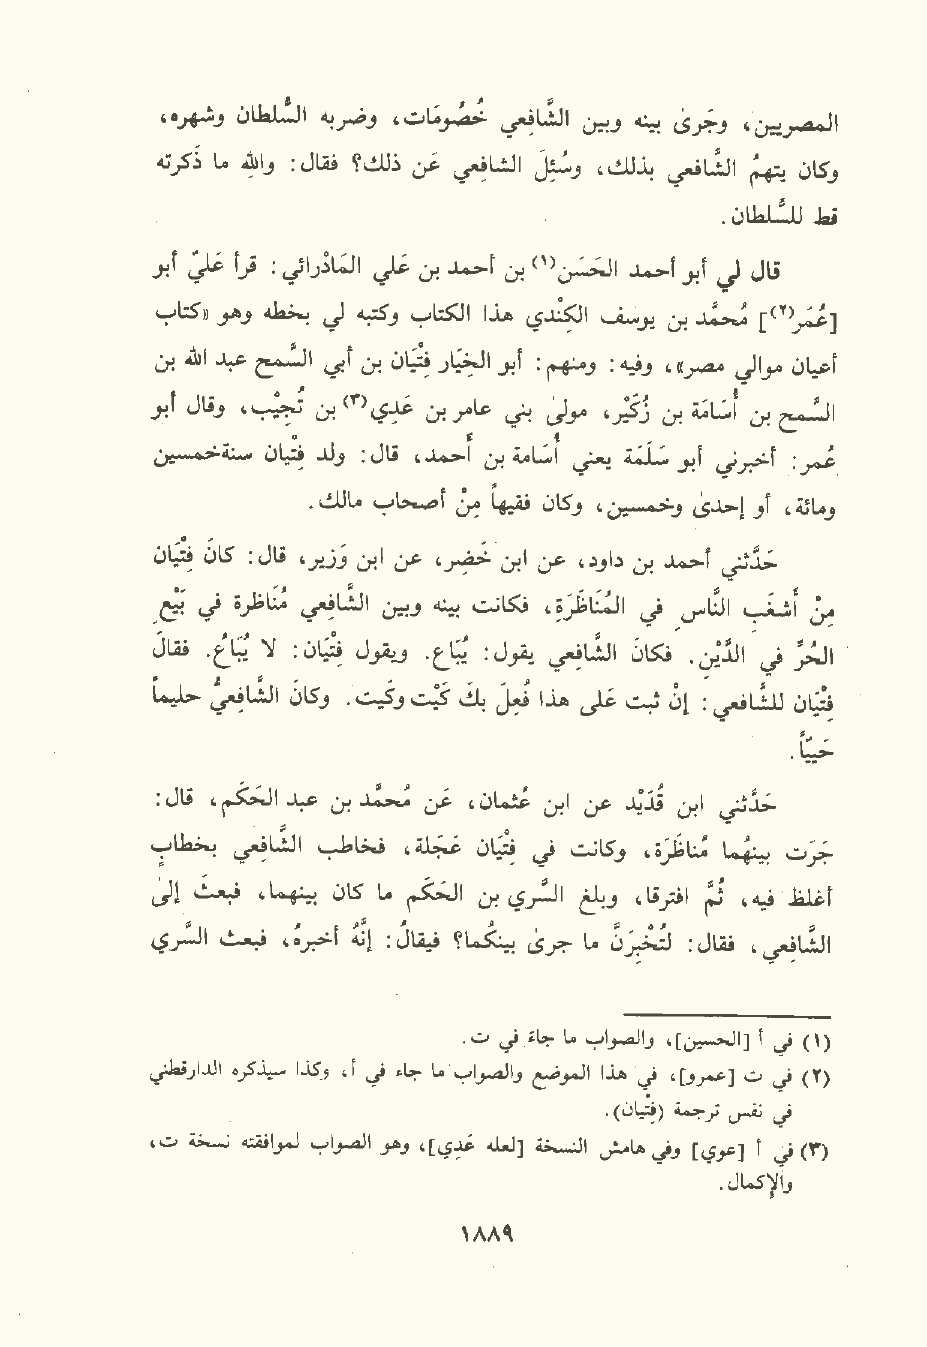 المصريين، وجَرىَ بينه وبين الشَّافِعي خُصُومَات، وضربه السُّلطان وشهره،
وكان يتهمُ الشَّافعي بذلك، وسُئِلَ الشافعي عَن ذلك؟ فقال: واللهِ ما ذَكرته
قط للسُّلطان.
قال لي أبو أحمد الحَسَن(١) بن أحمد بن علي المَاذرائي: قرأ عَليّ أبو
[عُمَر(٢)] مُحمَّد بن يوسف الكِنْدي هذا الكتاب وكتبه لي بخطه وهو «كتاب
أعيان موالي مصر»، وفيه: ومنهم: أبو الخِيَار فِتْيَان بن أبي السَّمح عبد الله بن
السَّمح بن أسَامَة بن زُكَيْر، مولىَ بني عامر بن عَدِي(٣) بن تُجِيْب، وقال أبو
عُمر: أخبرني أبو سَلَمَة يعني أُسَامة بن أَحمد، قال: ولد فِتْيان سنةخمسين
ومائة، أو إحدىَ وخمسين، وكان فقيهاً مِنْ أصحاب مالك.
حَدَّثني أحمد بن داود، عن ابن خَضِر، عن ابن وَزير، قال: كَان فِتْيَان
مِنْ أَشْغَبِ النَّاسِ في المُنَاظَرَةِ، فكانت بينه وبين الشَّافعي مُنَاظرة في بَيْعِ
الحُرِّ في الدَّيْنِ. فكَان الشَّافعي يقول: يُبَاع. ويقول فِتْيَان: لا يُبَاعُ. فقالَ
فِتْيَان للشَّافعي: إنْ ثبت عَلى هذا فُعِلَ بكَ كَيْت وكَيت. وكانَ الشَّافعيُّ حليماً
حَيِيّاً.
حَدَّثني ابن قُدَيْد عن ابن عُثمان، عَن مُحمَّد بن عبد الحَكَم، قال:
جَرَت بينهُما مُنَاظَرَة، وكانت في فِتْيَان عَجَلة، فخاطب الشَّافعي بخطابٍ
أغلظ فيه، ثُمَّ افترقا، وبلغ السَّري بن الحَكَم ما كان بينهما، فبعثَ إلىَ
الشَّافِعي، فقال: لَتُخْبِرَنَّ ما جرىَ بينكُما؟ فيقالُ: إنَّهُ أخبرهُ، فبعث السَّري
(١) في أ [الحسين]، والصواب ما جاء في ت.
(٢) في ت [عمرو]، في هذا الموضع والصواب ما جاء في أ، وكذا سيذكره الدارقطني
في نفس ترجمة (فِتْيان).
(٣) في أ [عوي] وفي هامش النسخة [لعله عَدِي]، وهو الصواب لموافقته نسخة ت،
والإكمال.
١٨٨٩